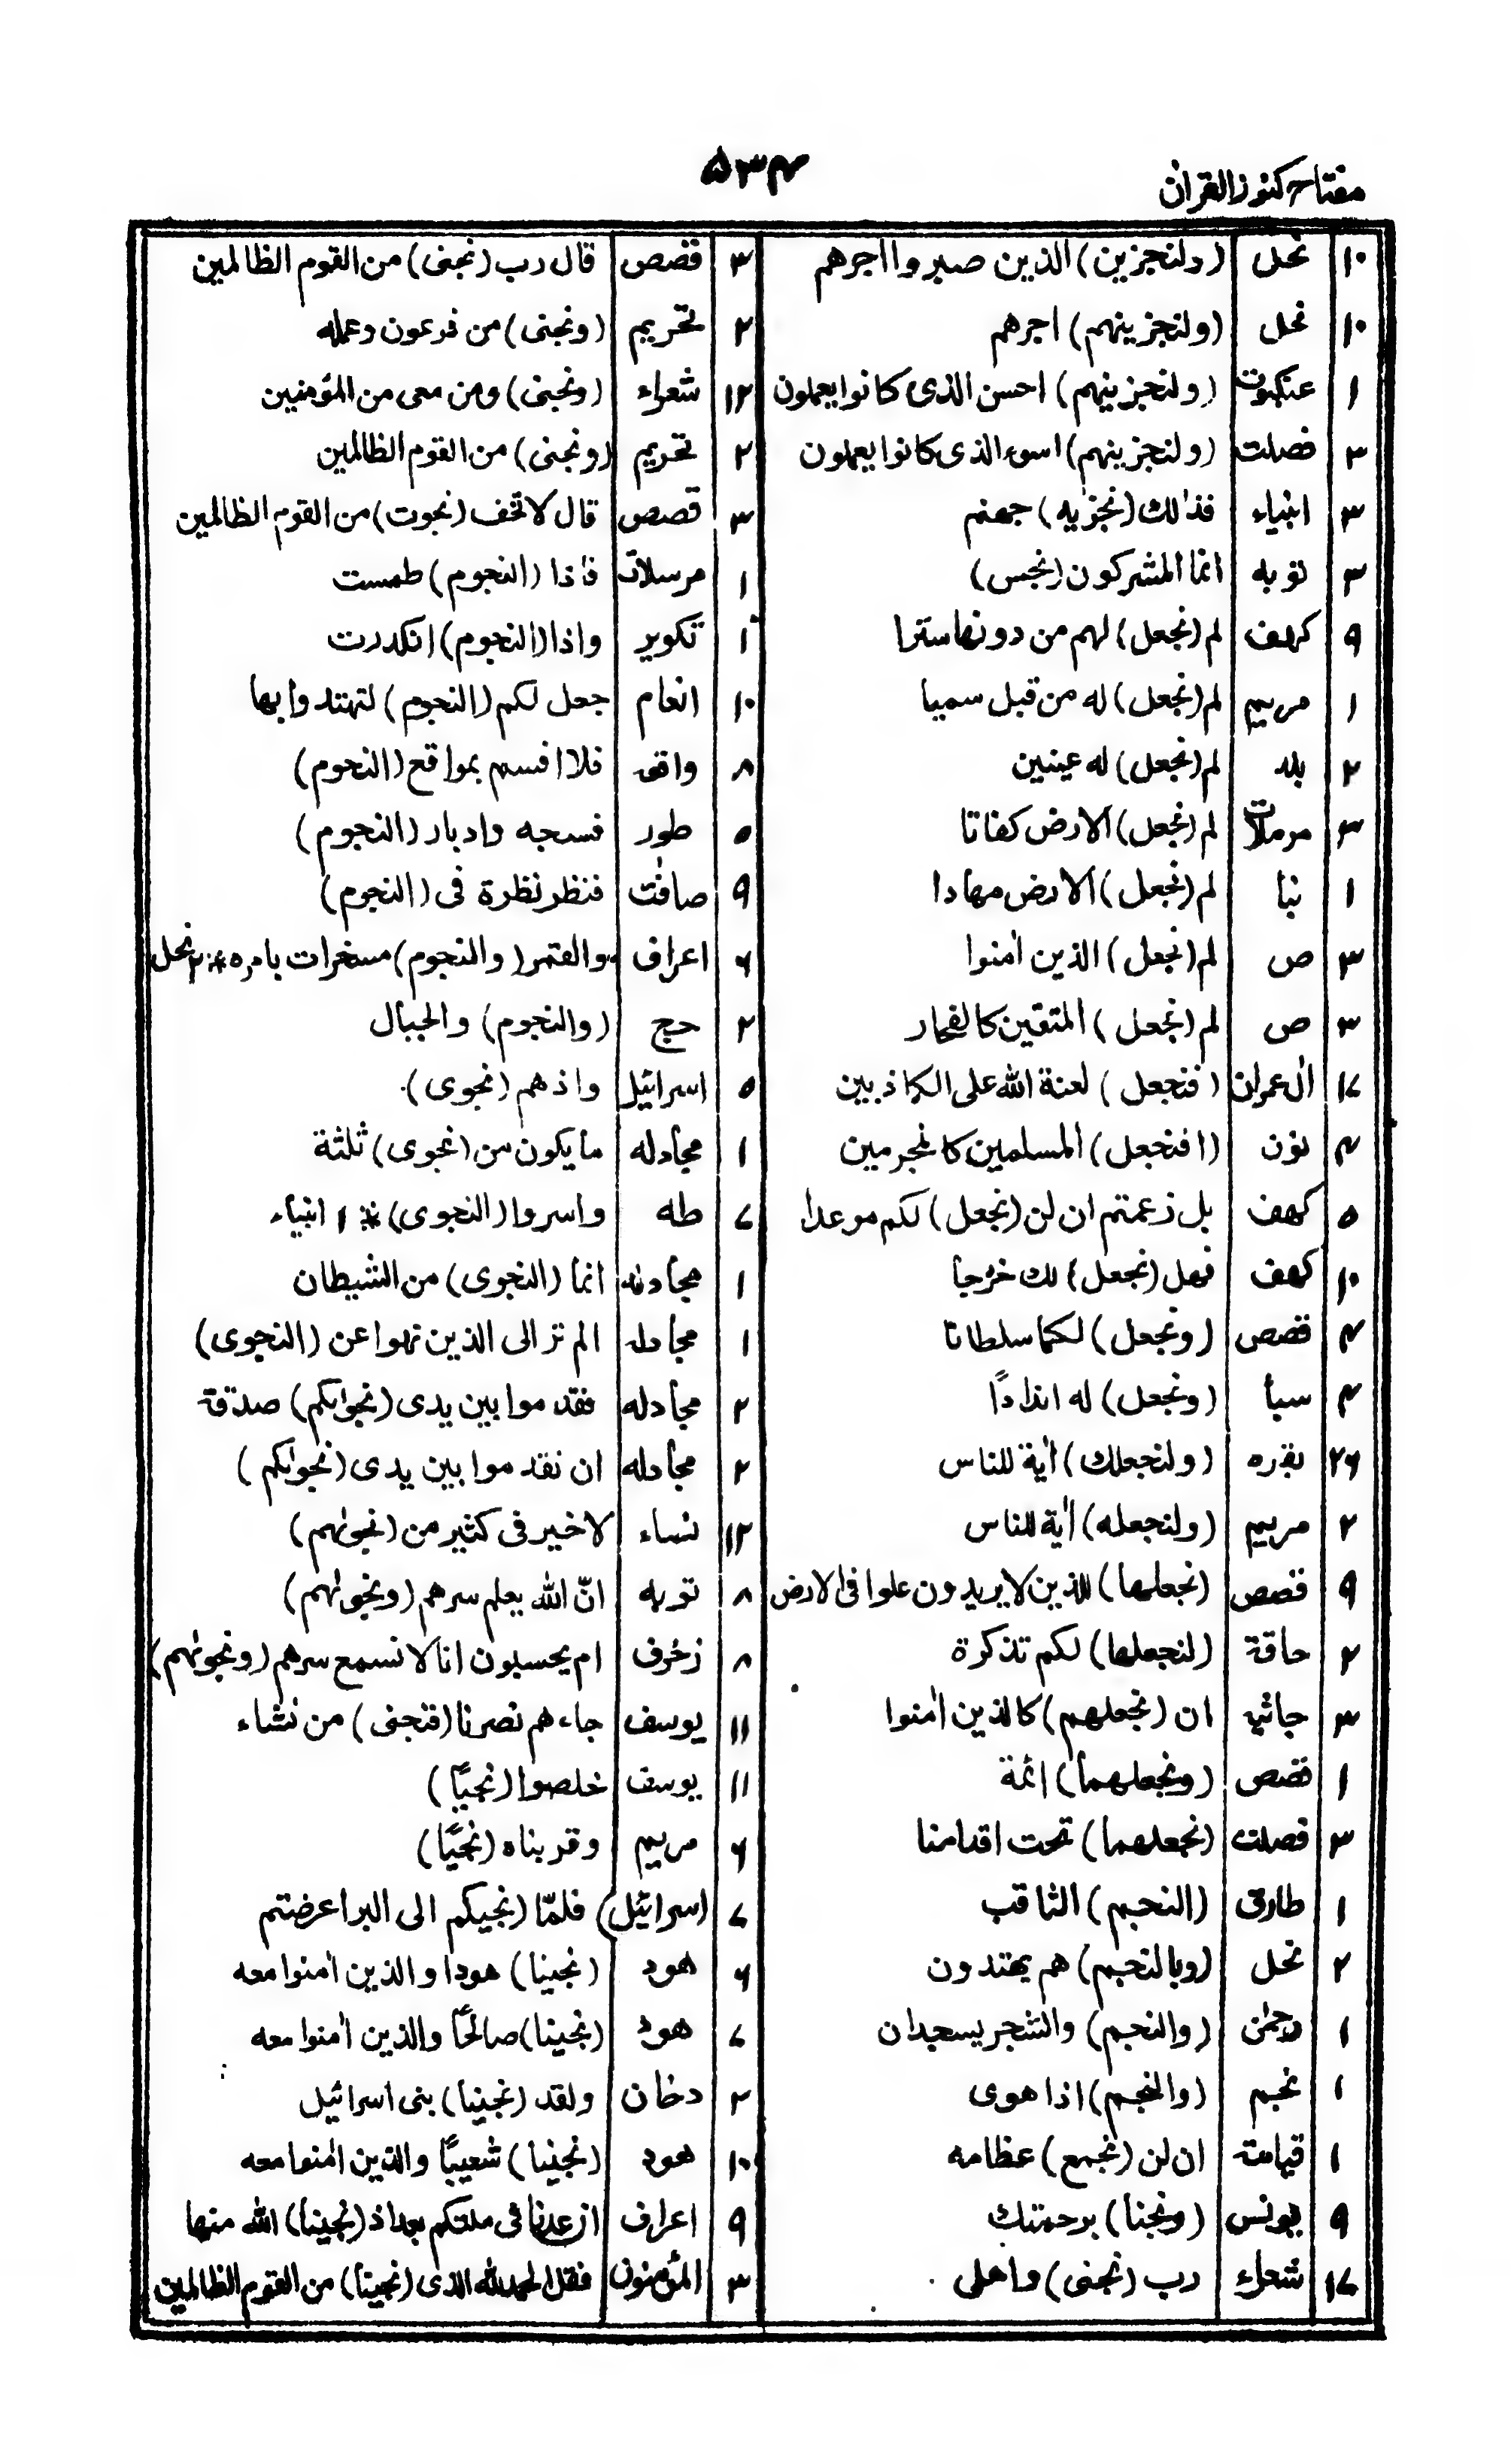 مفتاح كنوز القران
۵۳۴
۱۰ نحل (ولنجزين) الذين صبروا اجرهم
۱۰ نحل (ولنجزينهم) اجرهم
۱ عنكبوت (ولنجزينهم) احسن الذى كانوا يعملون
۳ فصلت (ولنجزينهم) اسوء الذى كانوا يعملون
۳ انبياء فذالك (نجزيه) جهنم
۳ توبه انما المشركون (نجس)
۹ كهف لم (نجعل) لهم من دونها سترا
۱ مريم لم (نجعل) له من قبل سميا
۲ بلد لم (نجعل) له عينين
۳ مرملات لم (نجعل) الارض كفاتا
۱ نبا لم (نجعل) الارض مهادا
۳ ص لم (نجعل) الذين امنوا
۳ ص لم (نجعل) المتقين كالفجار
۱۷ ال عمران (فنجعل) لعنة الله على الكاذبين
۴ نون (افنجعل) المسلمين كالمجرمين
۵ كهف بل زعمتم ان لن (نجعل) لكم موعدا
۱۰ كهف فهل (نجعل) لك خرجا
۴ قصص (ونجعل) لكما سلطانا
۴ سبأ (ونجعل) له اندادًا
۲۶ بقره (ولنجعلك) اية للناس
۲ مريم (ولنجعله) اية للناس
۹ قصص (نجعلها) للذين لا يريدون علوا فى الارض
۲ حاقة (لنجعلها) لكم تذكرة
۳ جاثيه ان (نجعلهم) كالذين امنوا
۱ قصص (ونجعلهما) ائمة
۳ فصلت (نجعلهما) تحت اقدامنا
۱ طارق (النجم) الثاقب
۲ نحل (وبالنجم) هم يهتدون
۱ رحمن (والنجم) والشجر يسجدان
۱ نجم (والنجم) اذا هوى
۱ قيامة ان لن (نجمع) عظامه
۹ يونس (ونجنا) برحمتك
۱۷ شعراء رب (نجنى) واهلى
۳ قصص قال رب (نجنى) من القوم الظالمين
۲ تحريم (ونجنى) من فرعون وعمله
۱۲ شعراء (ونجنى) ومن معى من المؤمنين
۲ تحريم (ونجنى) من القوم الظالمين
۳ قصص قال لا تخف (نجوت) من القوم الظالمين
۱ مرسلات فاذا (النجوم) طمست
۱ تكوير واذا (النجوم) انكدرت
۱۰ انعام جعل لكم (النجوم) لتهتدوا بها
۸ واقعه فلا اقسم بمواقع (النجوم)
۵ طور فسبحه وادبار (النجوم)
۹ صافت فنظر نظرة فى (النجوم)
۶ اعراف والقمر (والنجوم) مسخرات بامره * ۲ نحل
۲ حج (والنجوم) والجبال
۵ اسرائيل واذهم (نجوى)
۱ مجادله ما يكون من (نجوى) ثلثة
۷ طه واسروا (النجوى) * ۱ انبياء
۱ مجادله انما (النجوى) من الشيطان
۱ مجادله الم تر الى الذين نهوا عن (النجوى)
۲ مجادله فقدموا بين يدى (نجوٰىكم) صدقة
۲ مجادله ان تقدموا بين يدى (نجوٰىكم)
۱۲ نساء لا خير فى كثير من (نجوٰىهم)
۸ توبه انّ الله يعلم سرهم (ونجوٰىهم)
۸ زخرف ام يحسبون انا لا نسمع سرهم (ونجوٰىهم)
۱۱ يوسف جاءهم نصرنا (فنجى) من نشاء
۱۱ يوسف خلصوا (نجيًّا)
۶ مريم وقربناه (نجيًّا)
۷ اسرائيل) فلمّا (نجيكم الى البر اعرضتم
۶ هود (نجينا) هودا والذين امنوا معه
۷ هود (نجينا) صالحًا والذين امنوا معه
۲ دخان ولقد (نجينا) بنى اسرائيل
۱۰ هود (نجينا) شعيبًا والذين امنوا معه
۹ اعراف ان عدنا فى ملتكم بعد اذ (نجينا) الله منها
۳ المؤمنون فقل الحمد لله الذى (نجينا) من القوم الظالمين